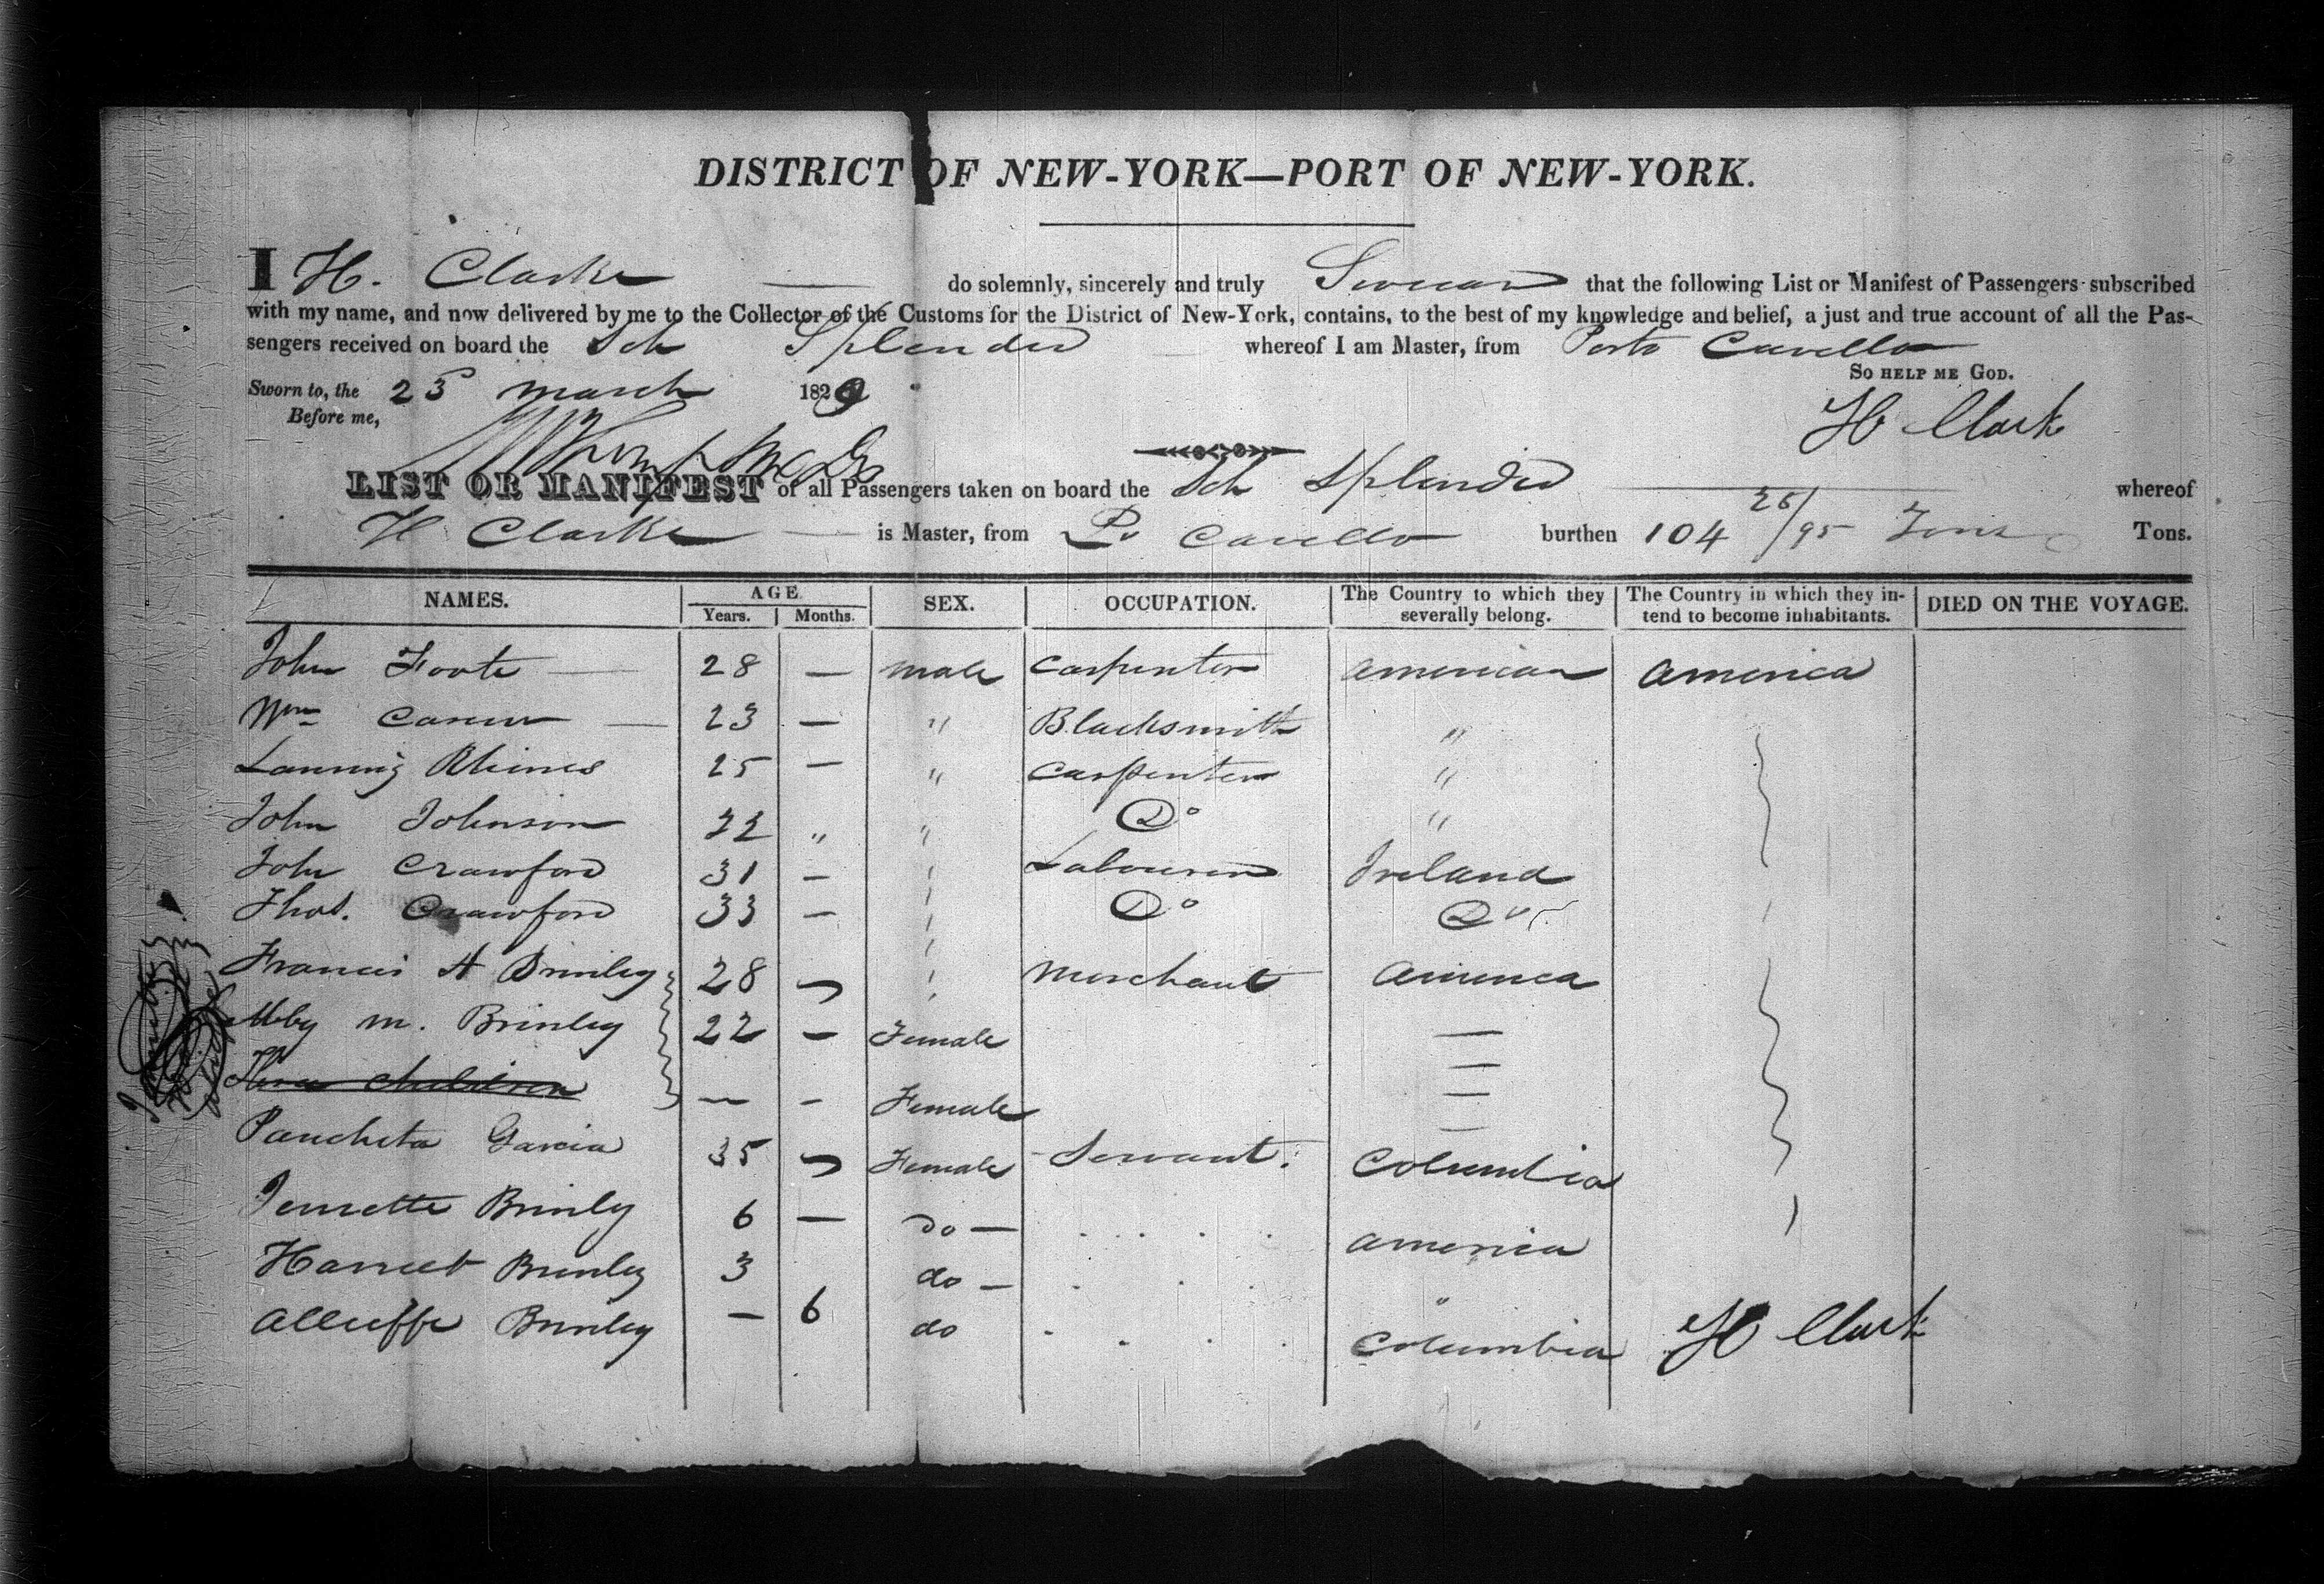 DISTRICT OF NEW-YORK—PORT OF NEW-YORK.
I H. Clarke do solemnly, sincerely and truly Swear that the following List or Manifest of Passengers subscribed
with my name, and now delivered by me to the Collector of the Customs for the District of New-York, contains, to the best of my knowledge and belief, a just and true account of all the Pas-
sengers received on board the Sch Splendid whereof I am Master, from Porto Cavello
So HELP ME GOD.
Sworn to, the 23 march 1829
Before me,
H Clark
LIST OR MANIFEST of all Passengers taken on board the Sch Splendid whereof
H Clarke is Master, from Po Cavello burthen 104 25/95 Tons Tons.
NAMES. AGE. Years. Months. SEX. OCCUPATION. The Country to which they severally belong. The Country in which they in-tend to become inhabitants. DIED ON THE VOYAGE.
John Foote — 28 — male Carpenter American America
Wm — 23 — " Blacksmith "
Lanning Rhines 25 — " Carpenter "
John Johnson 22 " " Do "
John Crawford 31 — " Labourer Ireland
Thos. Crawford 33 — " Do Do
Francis H Brinley 28 — " Merchant America
Abby M. Brinley 22 — Female —
Three children — — Female —
Pancheta Garcia 35 — Female Servant. Columbia
Jennette Brinley 6 — do — America
Harriet Brinley 3 do — "
Brinley — 6 do Columbia
H Clark